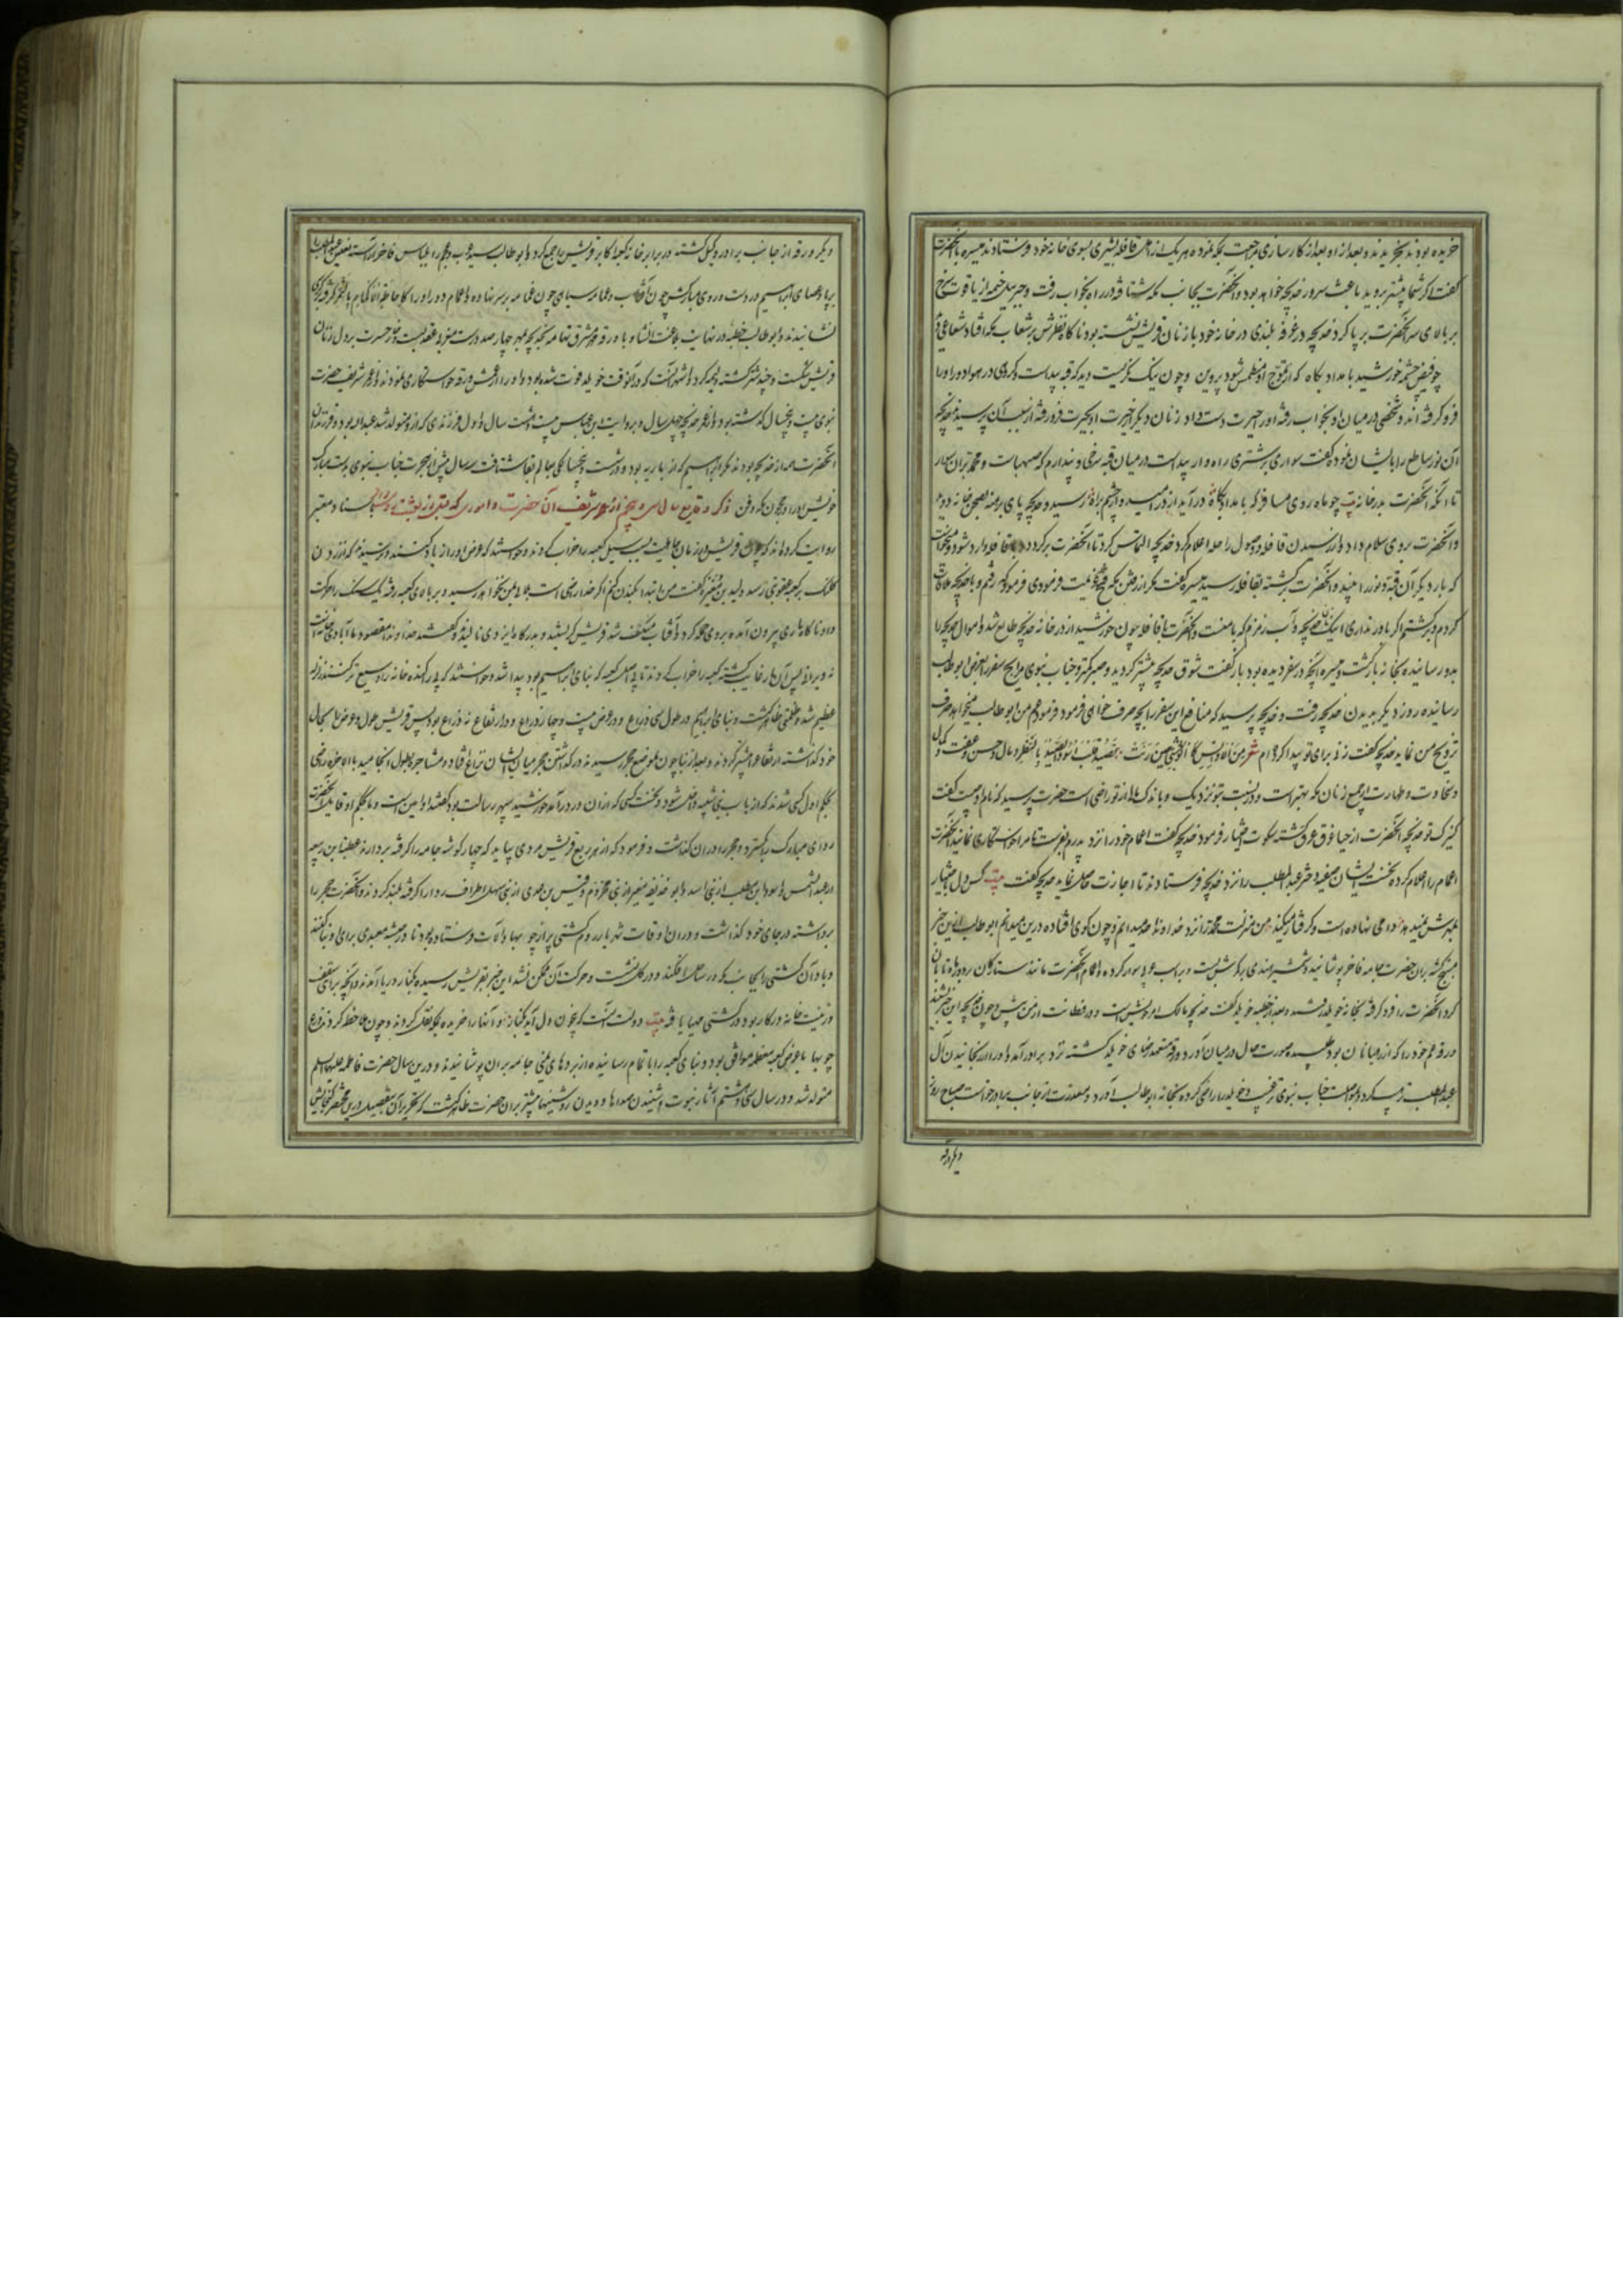 خریده بودند بخریدند و بعد از کارسازی مراجعت بمکه نموده هر یک از اهل قافله بشیری بسوی خانه خود فرستادند میسره با آنحضرت
گفت اگر شما پیشتر بروید باعث سرور خدیجه خواهد بود و آنحضرت بجانب مکه شتافته در راه بخواب رفت و جبرئیل خیمه از یاقوت سرخ
بر بالای سر آنحضرت بر پا کرد خدیجه در غرفه بلندی در خانه خود با زنان قریش نشسته بود ناگاه نظرش بر شعاب مکه افتاد شعاعی دید
چو فیض چشمه خورشید بامداد پگاه که از تموج او منطمس شود پروین و چون نیک نگریست دید که قبه پیداست و کروی در هوا دور او را
فرو گرفته اند و شخصی در میان او بخواب رفته او را حیرت دست داد زنان دیگر از حیرت او بحیرت فرو رفته از سبب آن پرسیدند خدیجه
آن نور ساطع را بایشان نموده گفت سواری بر شتری راه وار پیداست در میان قبه سرخی و پندارم که صهباست و محمد بران سوار
تا آنکه آنحضرت بدر خانه بیت چو ماه روی مسافر که بامداد پگاه در آید از در امید و ارچشم براه رسید و خدیجه پای برهنه بصحن خانه دوید
و آنحضرت بروی سلام داد و از رسیدن قافله و وصول راحله اعلام کرد خدیجه التماس کرد تا آنحضرت برگردد و با قافله وارد شود و میخواست
که بار دیگر آن قبه و نور را بیند و آنحضرت برگشته بقافله رسید میسره گفت مگر از رفتن مکه فسخ عزیمت فرمودی فرمود که رفتم و با خدیجه ملاقات
کردم و برگشتم اگر باور نداری اینک نان خدیجه و آب زمزم که با منست و آنحضرت با قافله چون خورشید از در خانه خدیجه طالع شد و اموال خدیجه را
بدو رسانیده بخانه بازگشت و میسره آنچه در سفر دیده بود باز گفت شوق خدیجه بیشتر گردید و صبر کمتر و جناب نبوی مرابح سفر را بعرض ابوطالب
رسانیده روز دیگر بدیدن خدیجه رفت و خدیجه پرسید که منافع این سفر را بچه صرف خواهی فرمود فرمود عم من ابوطالب میخواهد صرف
تزویج من نماید خدیجه گفت زنی برای تو پیدا کرده ام شعر
و سخاوت و طهارت از جمیع زنان مکه بهتر است و در نسب بتو نزدیک و باندک مال از تو راضی است حضرت پرسید که نام او چیست گفت
کنیزک تو خدیجه آنحضرت از حیا غرق عرق گشته سکوت اختیار فرمود خدیجه گفت اعمام خود را نزد پدرم بفرست تا مرا خواستگاری نمایند آنحضرت
اعمام را اعلام کرده نخست ایشان صفیه دختر عبدالمطلب را نزد خدیجه فرستادند تا اجازت حاصل نماید خدیجه گفت بیت
من منزلت محمد را نزد خداوند میدانم و چون گوی افتاده درین میدانم ابوطالب ازین خبر
مبتهج گشته بران حضرت جامه فاخر پوشانید و شمشیر هندی بر کمرش بست و بر اسب عربی سوار کرده اعمام آنحضرت مانند ستارگان بر دور ماه تابان
گرد آنحضرت را فرو گرفته بخانه خویلد رفتند و بعد از خطبه خویلد گفت خدیجه مالک امر خویش است و در فطانت از من بیش و چون خدیجه این خبر شنید
ورقه عم خود را که از رهبانان بود طلبیده صورت حال در میان آورد و ورقه متعهد رضای خویلد گشته نزد برادر آمد و او را از رنجانیدن آل
عبدالمطلب ترسانید و بمواصلت جناب نبوی ترغیب و خویلد را راضی کرده بخانه ابوطالب آورد و معذرت از جانب برادر خواست صباح روز
دیگر ورقه
دیگر ورقه از جانب برادر وکیل گشته در برابر خانه کعبه اکابر قریش را جمع کرد و ابوطالب سید عرب و عجم را بلباس فاخر آراسته نعلین عبدالمطلب را
برپا و عصای ابراهیم در دست و روی مبارکش چون آفتاب و عمامه سیاهی چون غمامه بر سر نهاده و اعمام دور او را
نشانیدند و ابوطالب خطبه در نهایت بلاغت انشا و با ورقه خدیجه بمهر چهارصد درست عقد بست و خار حسرت بر دل زنان
قریش شکست و چند شتر کشته ولیمه کرد و اشهر آنست که در آنوقت خویلد فوت شده بود و او را از عمش ورقه خواستگاری نمودند و از عمر شریف حضرت
نبوی بیست و پنجسال گذشته بود و از عمر خدیجه چهل سال و بروایت ابن عباس بیست و هشت سال و اول فرزندی که از او متولد شد عبدالله بود و فرزندان
آنحضرت همه از خدیجه بودند مگر ابراهیم که از ماریه بود و در شصت و پنجسالگی بعالم بقا شتافت سه سال پیش از هجرت جناب نبوی بدست مبارک
خویش او را در حجون مکه دفن کرد ذکر وقایع سال سی و پنجم از عمر شریف آن حضرت و اموری که قبل از بعثت بود باسناد معتبر
روایت کرده اند که چون قریش در زمان جاهلیت سیل کعبه را خراب کرده بود خواستند که عرض او را زیاد کنند و ترسیدند که از زدن
کلنگ بر کعبه عقوبتی رسد ولید بن مغیره گفت من ابتدا بکندن کنم اگر خدا راضی است بلا بمن نخواهد رسید و بر بالای کعبه رفته یک سنگ را حرکت
داد ناگاه ماری بیرون آمده بروی حمله کرد و آفتاب منکسف شد قریش گریستند و بدرگاه ایزدی نالیدند و گفتند خداوندا مقصود ما آبادی خانه است
نه ویرانی پس آن مار غایب گشته کعبه را خراب کردند تا باصل کعبه که بنای ابراهیم بود پیدا شد و خواستند که پی را کنده خانه را وسیع تر کنند زلزله
عظیم شد و ظلمتی ظاهر گشت و بنای ابراهیم در طول سی ذراع و در عرض بیست و چهار ذراع و در ارتفاع نه ذراع بود پس قریش طول و عرض را بحال
خود گذاشته ارتفاع را بیشتر کردند و بعد از بنا چون بموضع حجر رسیدند در گذاشتن حجر میان ایشان نزاع افتاد و مشاجره بطول انجامید تا بالاخره راضی
بحکم اول کسی شدند که از باب بنی شیبه داخل شود و نخست کسی که از آن در درآمد خورشید سپهر رسالت بود گفتند او امین است و ما بحکم او قایلیم آنحضرت
ردای مبارک بگسترد و حجر را در آن گذاشت و فرمود که از هر ربع قریش مردی بیاید که چهار گوشه جامه را گرفته بردارند عتبة ابن ربیعه
از عبدالشمس و اسود ابن مطلب از بنی اسد و ابو حذیفه بن مغیره از بنی مخزوم و قیس بن عدی از بنی سهل اطراف ردا را گرفته بلند کردند و آنحضرت حجر را
برداشته در جای خود گذاشت و در آن اوقات شهریار روم کشتی پر از چوبها و آلات فرستاده بود تا در حبشه معبدی برای او بنا کنند
و باد آن کشتی را بجانب مکه در ساحل افکند و در گل نشست و حرکت آن ممکن نشد این خبر بقریش رسیده بکنار دریا آمدند و آنچه برای سقف
و زینت خانه در کار بود در کشتی مهیا یافته بیت دولت آنست که بی خون دل آید بکنار و آنها را خریده بمکه نقل کردند و چون ملاحظه کردند ذرع
چوبها با عرض کعبه معظمه موافق بود و بنای کعبه را باتمام رسانیده از بردهای یمنی جامه بران پوشانیدند و درین سال حضرت فاطمه علیها السلم
متولد شد و در سال سی و هشتم آثار نبوت از شنیدن صداها و دیدن روشنیها بیشتر بران حضرت ظاهر گشت که تحریر آن بتفصیل درین مختصر گنجایش